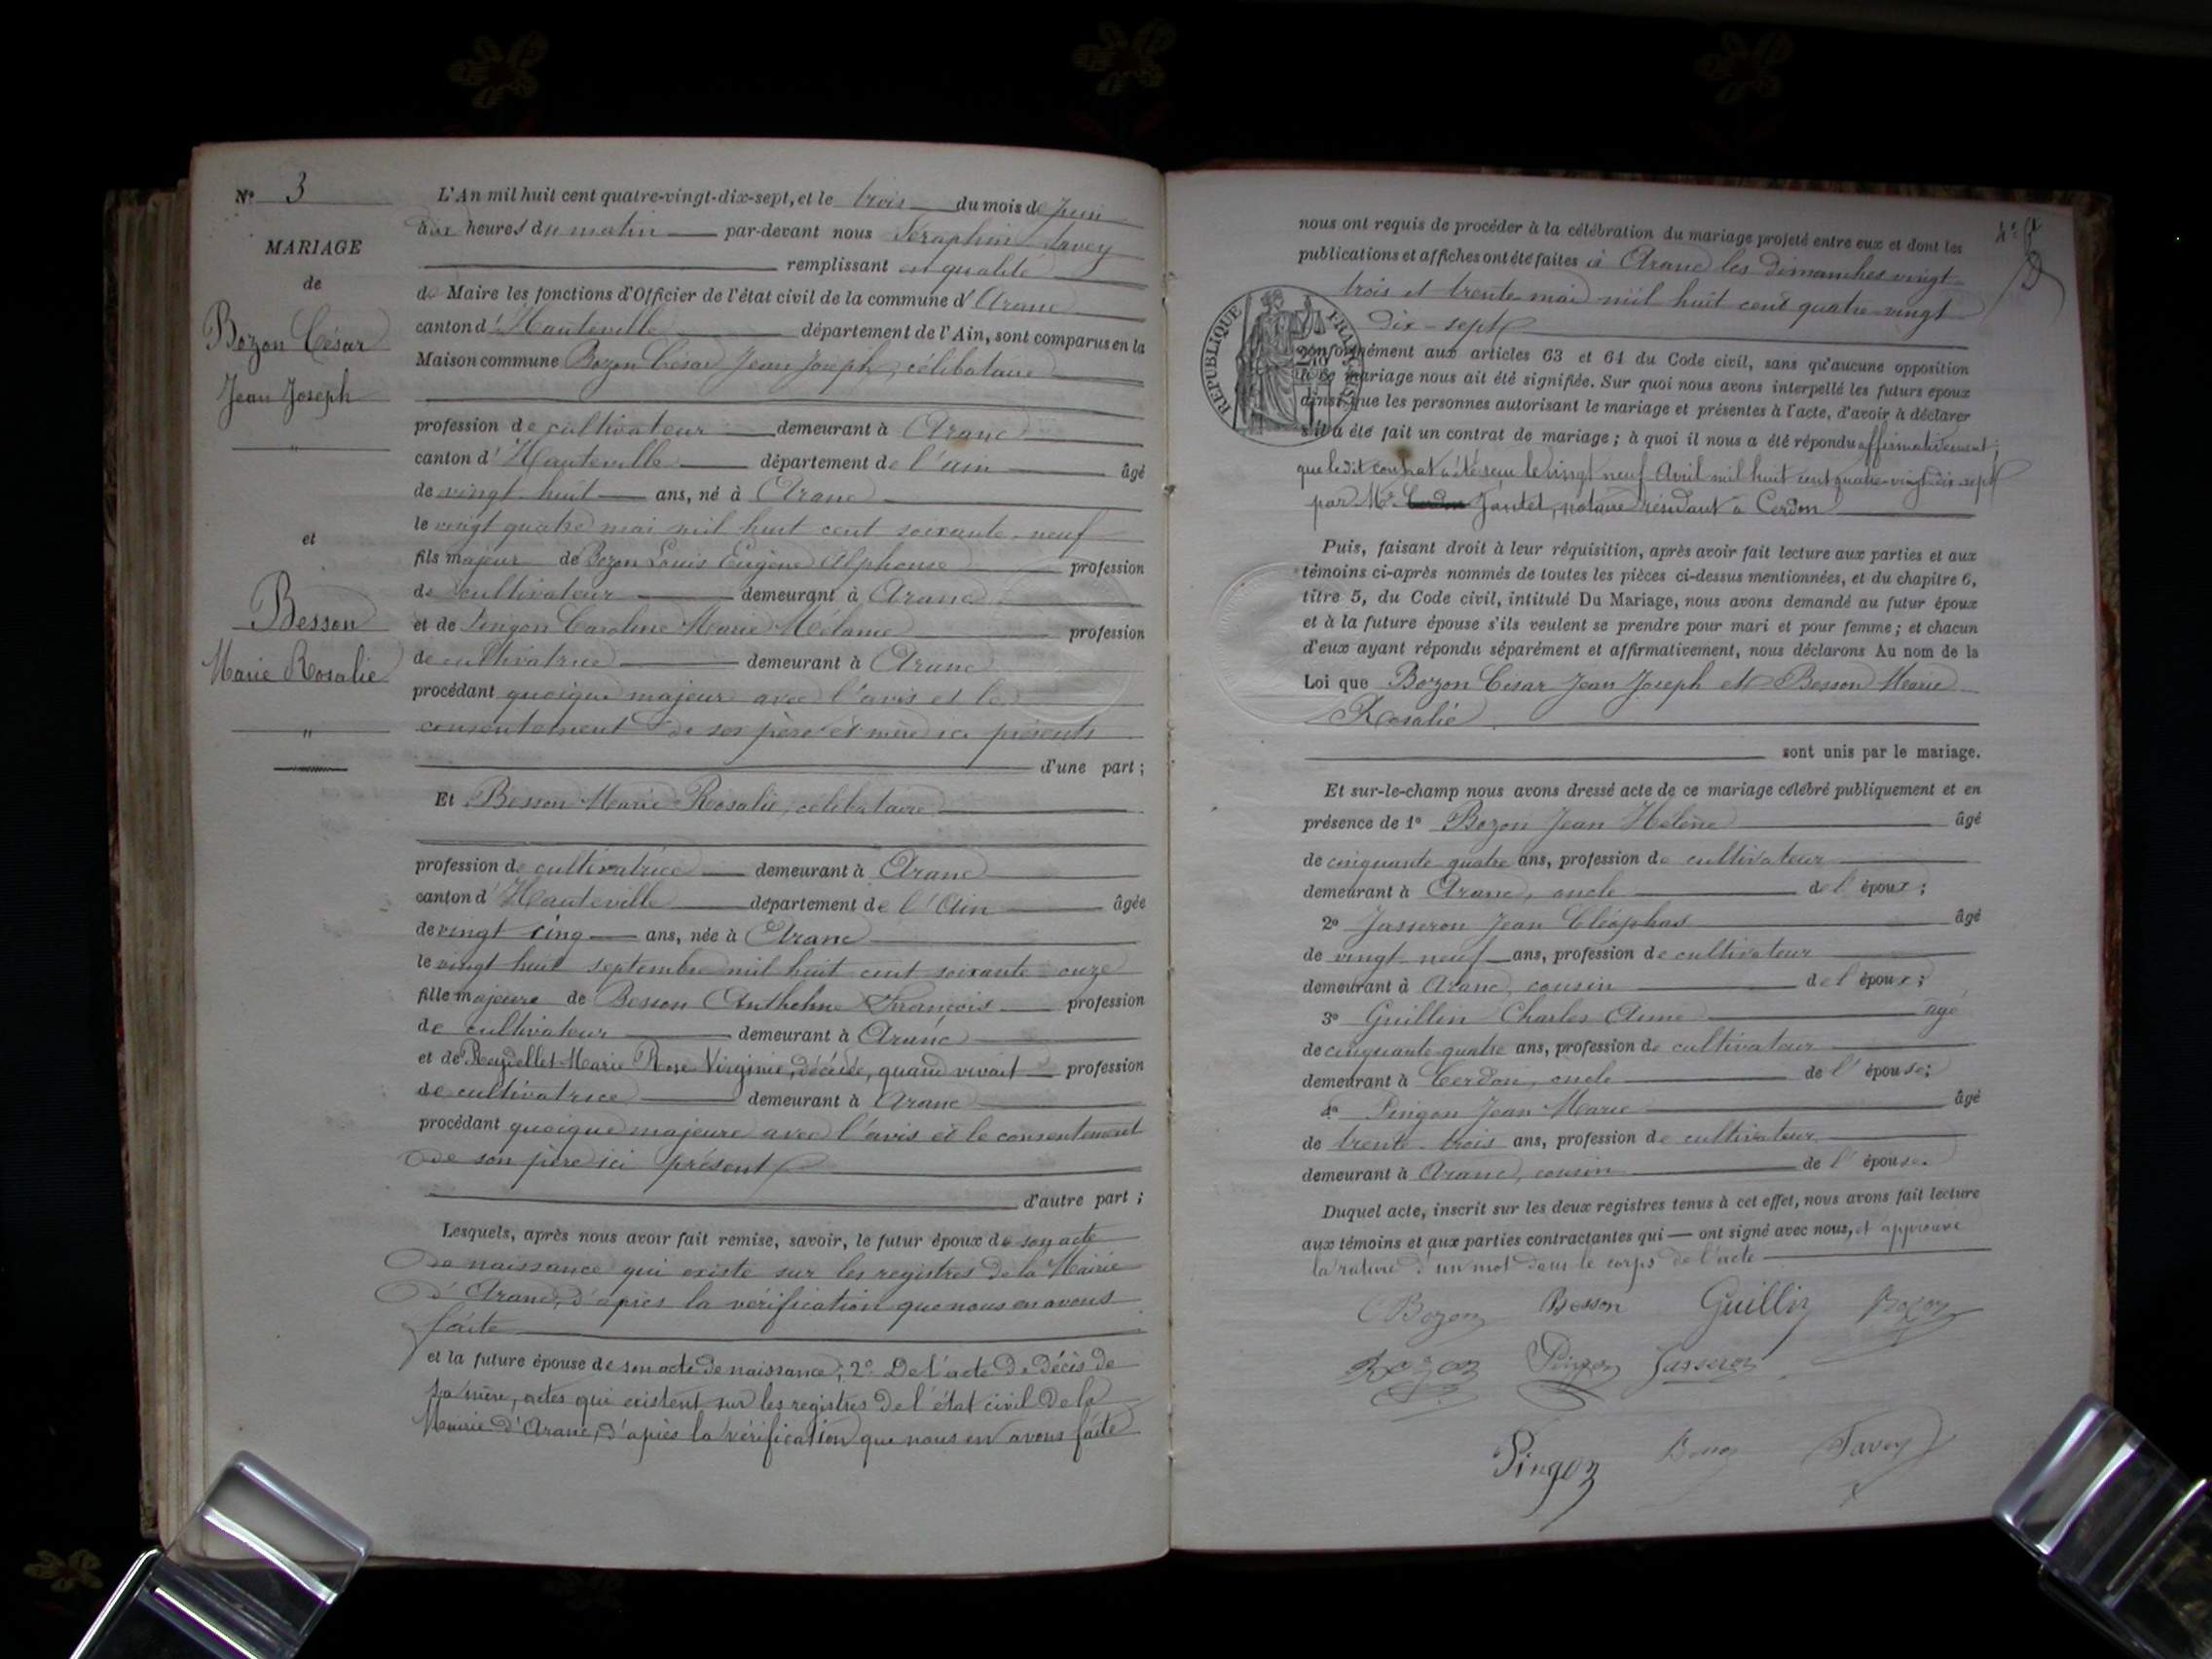 N° 3
MARIAGE
de
Bozon César
Jean Joseph
"
et
Besson
Marie Rosalie
"
L'An mil huit cent quatre-vingt-dix-sept, et le trois du mois de Juin
dix heures du matin par-devant nous Séraphin Savey
remplissant en qualité
de Maire les fonctions d'Officier de l'état civil de la commune d'Aranc
canton d'Hauteville département de l'Ain, sont comparus en la
Maison commune Bozon César Jean Joseph, célibataire
profession de cultivateur demeurant à Aranc
canton d'Hauteville département de l'ain âgé
de vingt-huit ans, né à Aranc
le vingt quatre mai mil huit cent soixante-neuf
fils majeur de Bozon Louis Eugène Alphonse profession
de cultivateur demeurant à Aranc
et de Pingon Caroline Marie Mélanie profession
de cultivatrice demeurant à Aranc
procédant quoique majeur avec l'avis et le
consentement de ses père et mère ici présents
d'une part ;
Et Besson Marie Rosalie, célibataire
profession de cultivatrice demeurant à Aranc
canton d'Hauteville département de l'Ain âgée
de vingt cinq ans, née à Aranc
le vingt huit septembre mil huit cent soixante-onze
fille majeure de Besson Anthelme François profession
de cultivateur demeurant à Aranc
et de Reydellet Marie Rose Virginie, décédée, quand vivait profession
de cultivatrice demeurant à Aranc
procédant quoique majeure avec l'avis et le consentement
de son père ici présent
d'autre part ;
Lesquels, après nous avoir fait remise, savoir, le futur époux de son acte
de naissance qui existe sur les registres de la Mairie
d'Aranc, d'après la vérification que nous en avons
faite
et la future épouse de son acte de naissance ; 2° De l'acte de décès de
sa mère, actes qui existent sur les registres de l'état civil de la
Mairie d'Aranc, d'après la vérification que nous en avons faite
nous ont requis de procéder à la célébration du mariage projeté entre eux et dont les
publications et affiches ont été faites à Aranc les dimanches vingt-
trois et trente mai mil huit cent quatre-vingt
dix-sept
RÉPUBLIQUE FRANÇAISE
conformément aux articles 63 et 64 du Code civil, sans qu'aucune opposition
à ce mariage nous ait été signifiée. Sur quoi nous avons interpellé les futurs époux
ainsi que les personnes autorisant le mariage et présentes à l'acte, d'avoir à déclarer
s'il a été fait un contrat de mariage ; à quoi il nous a été répondu affirmativement ;
que le dit contrat a été reçu le vingt neuf Avril mil huit cent quatre-vingt-dix-sept
par Me Cerdon Jantet, notaire résidant à Cerdon
Puis, faisant droit à leur réquisition, après avoir fait lecture aux parties et aux
témoins ci-après nommés de toutes les pièces ci-dessus mentionnées, et du chapitre 6,
titre 5, du Code civil, intitulé Du Mariage, nous avons demandé au futur époux
et à la future épouse s'ils veulent se prendre pour mari et pour femme ; et chacun
d'eux ayant répondu séparément et affirmativement, nous déclarons Au nom de la
Loi que Bozon César Jean Joseph et Besson Marie
Rosalie
sont unis par le mariage.
Et sur-le-champ nous avons dressé acte de ce mariage célébré publiquement et en
présence de 1° Bozon Jean Hélène âgé
de cinquante-quatre ans, profession de cultivateur
demeurant à Aranc, oncle de l'époux ;
2° Jasseron Jean Cléophas âgé
de vingt-neuf ans, profession de cultivateur
demeurant à Aranc, cousin de l'époux ;
3° Guillin Charles Aimé âgé
de cinquante-quatre ans, profession de cultivateur
demeurant à Cerdon, oncle de l'épouse ;
4° Pingon Jean Marie âgé
de trente-trois ans, profession de cultivateur
demeurant à Aranc, cousin de l'épouse.
Duquel acte, inscrit sur les deux registres tenus à cet effet, nous avons fait lecture
aux témoins et aux parties contractantes qui ont signé avec nous, et approuvé
la rature d'un mot dans le corps de l'acte
CBozon Besson Guillin Bozon
Bozon Pingon Jasseron
Pingon Savey